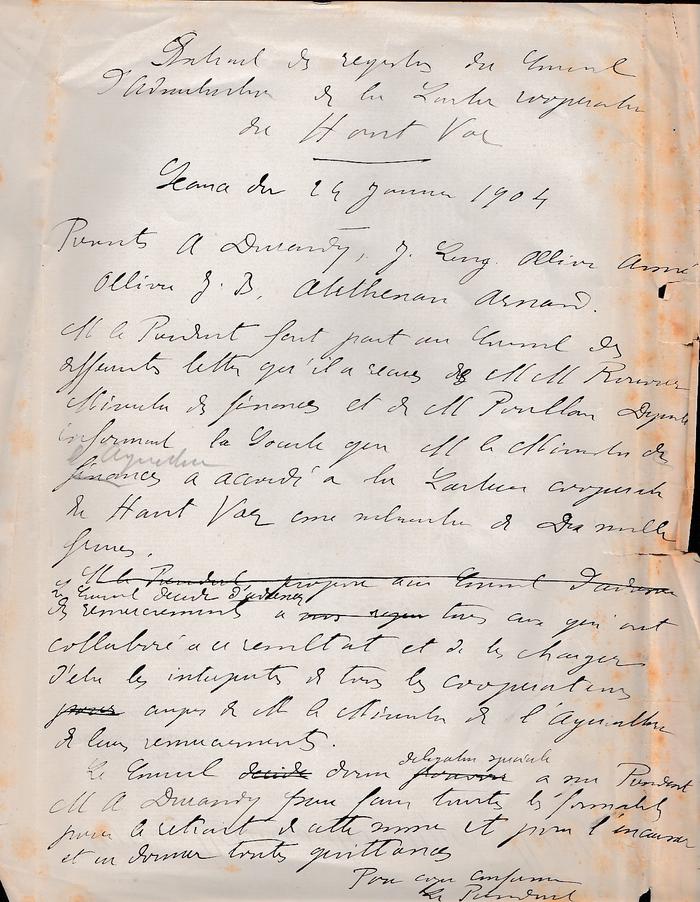 Extrait des registres du Conseil
d'Administration de la Laiterie cooperative
du Haut Var
Seance du 24 Janvier 1904
Presents A Durandy, J. Leng. Ollivier Aimé
Ollivier J. B. Arnaud.
M le President fait part au Conseil des
differentes lettres qu'il a recues de MM Rouvier
Ministre des finances et de M Poullan Depute
informant la Societe que M le Ministre de
l'Agriculture
finances a accordé a la Laiterie cooperative
du Haut Var une subvention de Dix mille
francs.
M le President propose au Conseil d'adresser
Le Conseil decide d'adresser
des remerciements a tous ceux qui ont
collaboré a ce resultat et de les charger
d'etre les interpretes de tous les cooperateurs
aupres de M le Ministre de l'Agriculture
de leurs remerciements.
delegation speciale
Le Conseil decide donne pouvoir a son President
M A Durandy pour faire toutes les formalités
pour le retrait de cette somme et pour l'encaisser
et en donner toutes quittances
Pour copie conforme
Le President